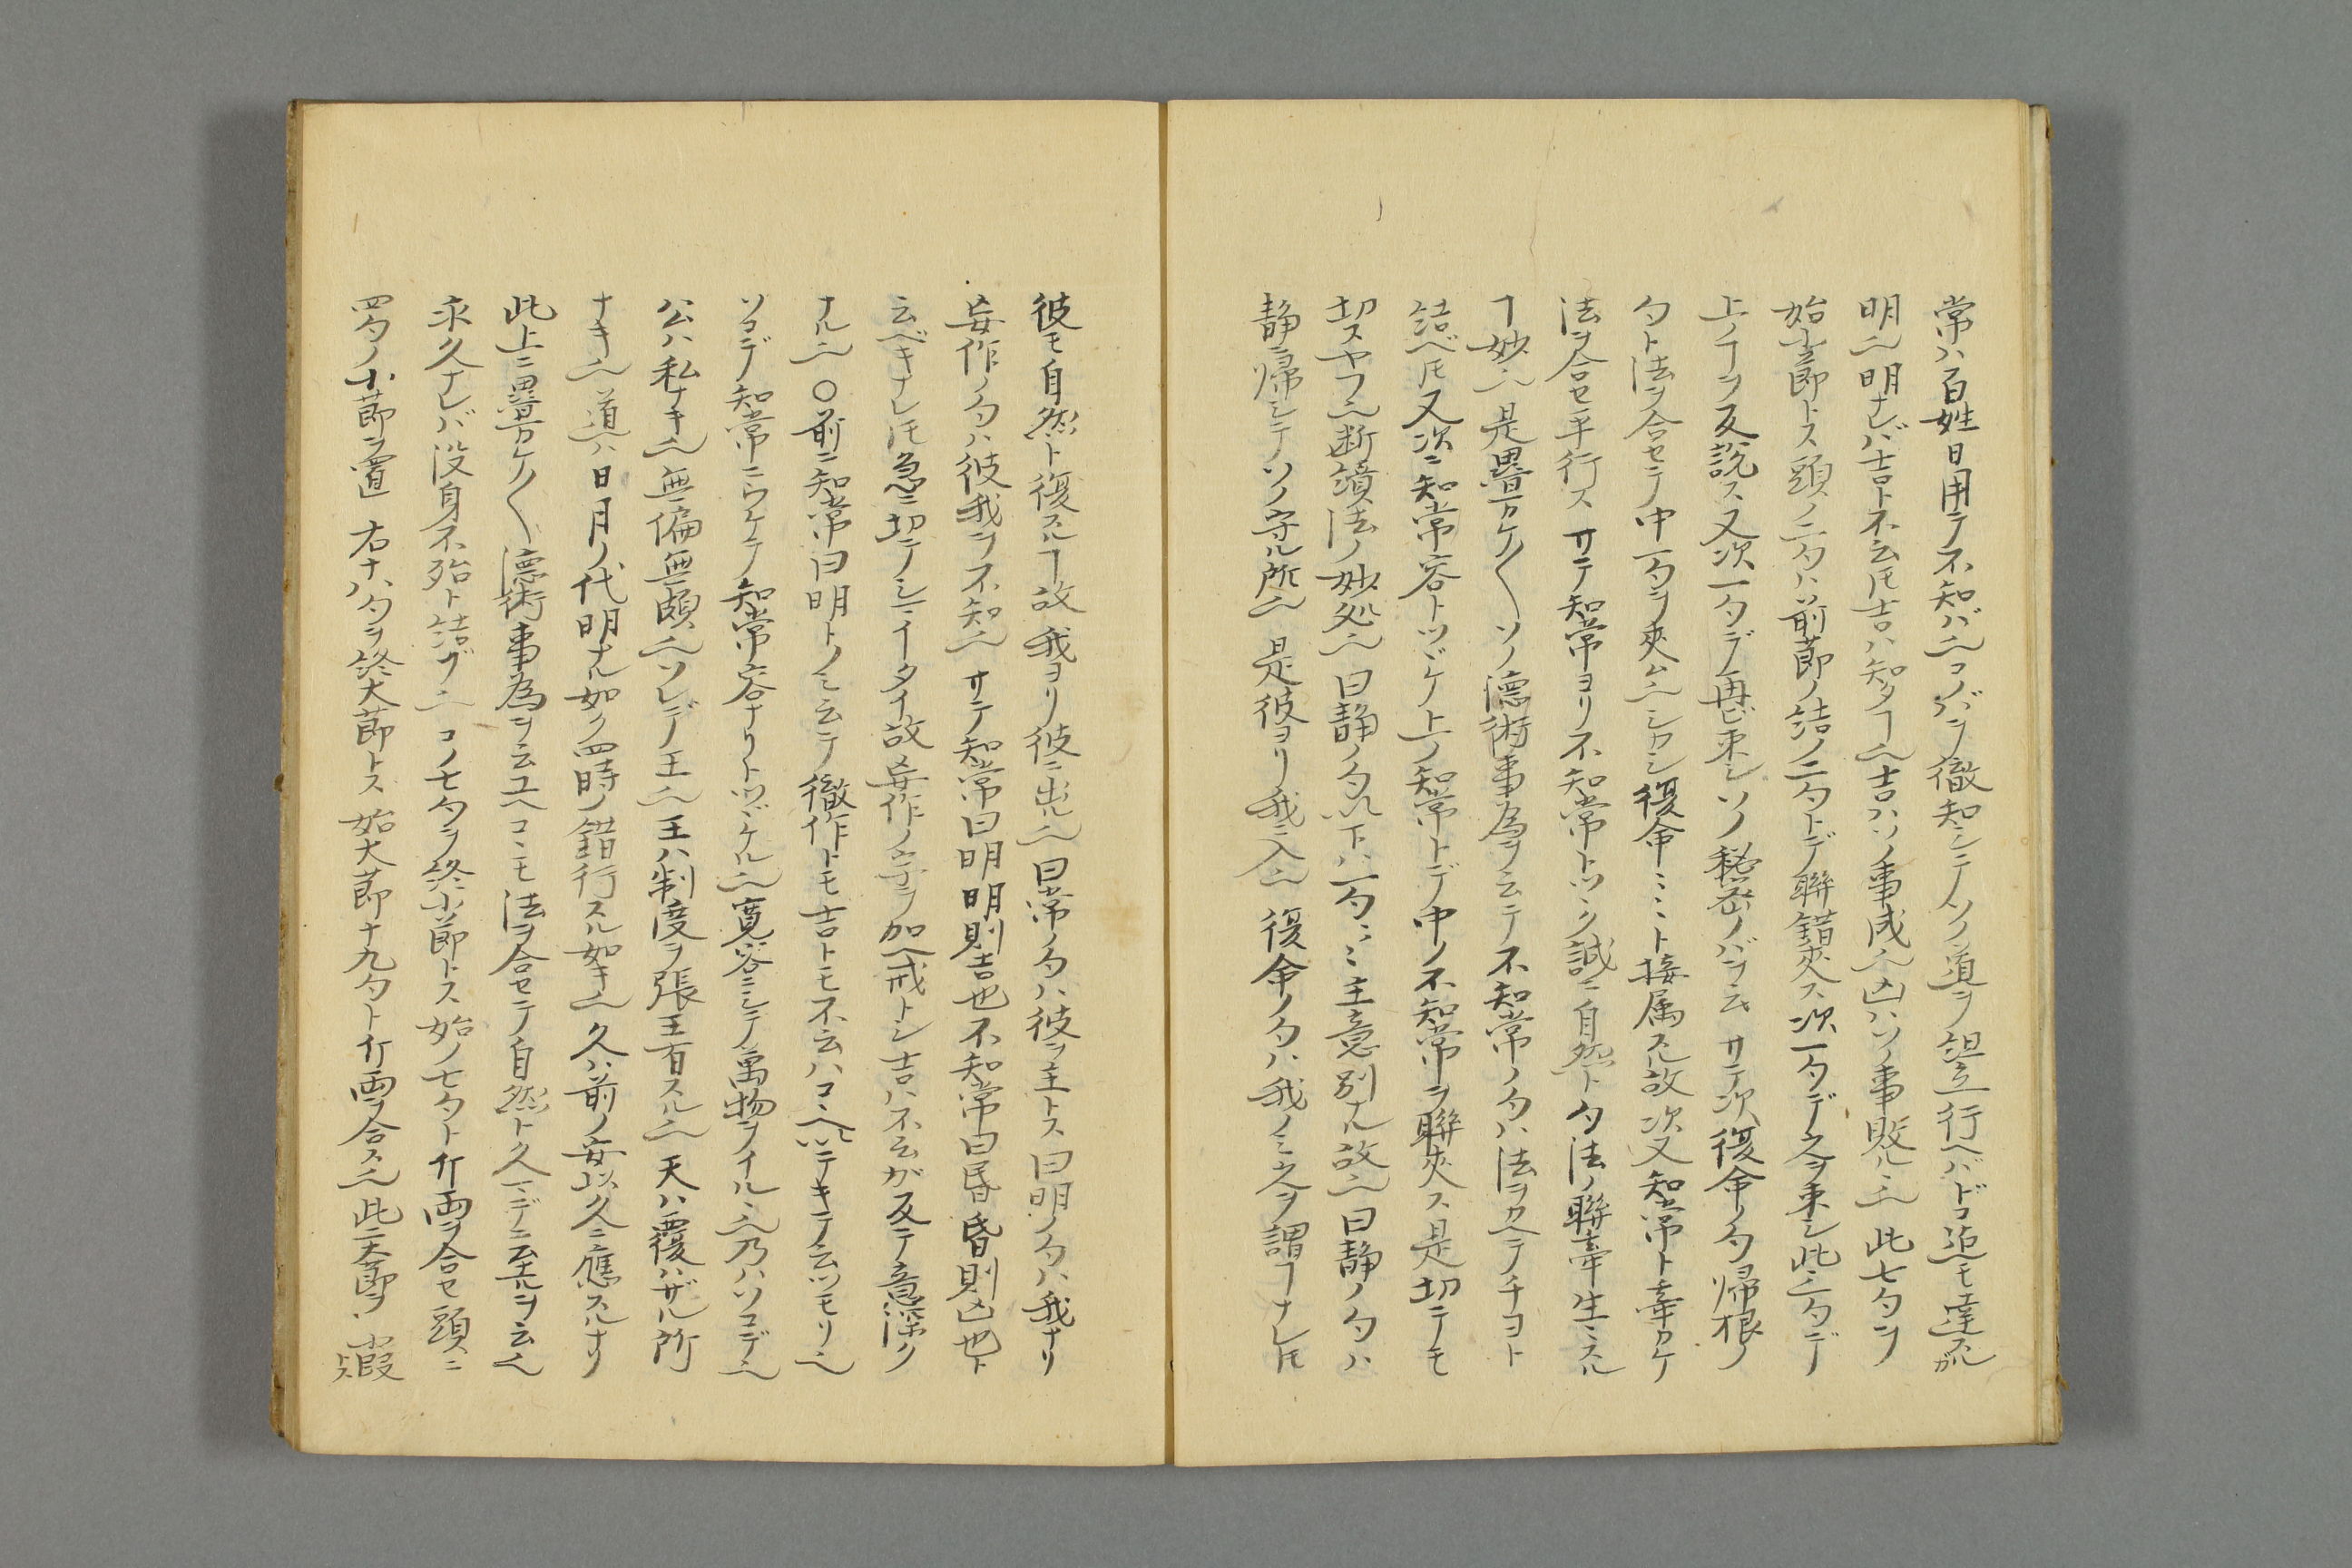 常ハ百姓日用テ不知バ也コノバヲ徹知シテソノ道ヲ行ヘバドコ迄モ達スルガ
明也明ナレバ吉ト不云ドモ吉ハ知タヿ也吉ハソノ事成也凶ハソノ事敗ルヽ也此七句ヲ
始小節トス頭ノ二句ハ前節ノ結ノ二句トデ聯錯夾ス次一句デ之ヲ束シ此三句デ
上ノヿヲ反説ス又次一句デ再ビ束シソノ秘密ノバヲ云サテ次復命ノ句帰根ノ
句ト法ヲ合セテ中一句ヲ夾ム也シカシ復命ミミト接属スル故次又知常ト牽カケ
法ヲ合セ平行スサテ知常ヨリ不知常トツヾク誠ニ自然ト句法ノ聯牽生ミスル
ヿ妙也是畳カケ〱ソノ德術事為ヲ云テ不知常ノ句ハ法ヲカヘテチヨト
結ベドモ又次ニ知常容トツヾケ上ノ知常トデ中ノ不知常ヲ聯夾ス是切テモ
切スヤフ也断續法ノ妙処也曰静ノ句以下ハ一句ミミ主意別ナル故也曰静ノ句ハ
静ニ帰シテソノ守ル所也是彼ヨリ我ニ入也復命ノ句ハ我ノミ之ヲ謂ヿナレドモ
彼モ自然ト復スルヿ故我ヨリ彼ニ出ル也曰常ノ句ハ彼ヲ主トス曰明ノ句ハ我ナリ
妄作ノ句ハ彼我ヲ不知也サテ知常曰明明則吉也不知常曰昏昏則凶也ト
云ベキナレドモ急ニ切テシマイタイ故妄作ノ字ヲ加ヘ戒トシ吉ハ不云ガ反テ意深ク
ナル也〇前ニ知常曰明トノミ云テ徹作トモ吉トモ不云ハコヽヘツイテキテ云ツモリ也
ソコデ知常ニウケテ知常容ナリトツヾケル也寛容ニシテ萬物ヲイルヽ也乃ハソコデ也
公ハ私ナキ也無偏無頗也ソレデ王也王ハ制度ヲ張王有スル也天ハ覆ハザル所
ナキ也道ハ日月ノ代明ナル如ク四時ノ錯行スル如キ也久ハ前ノ妄以久ニ應スルナリ
此上ニ畳カケ〱德術事為ヲ云ユヘコヽモ法ヲ合セテ自然ト久マデニ至ルヲ云也
永久ナレバ没身不殆ト結グ也コノ七句ヲ終小節トス始ノ七句ト行両ヲ合セ頭ニ
四句ノ小節ヲ置右十八句ヲ終大節トス始大節十九句ト行両ヲ合ス也此二大節ヲ小段トス